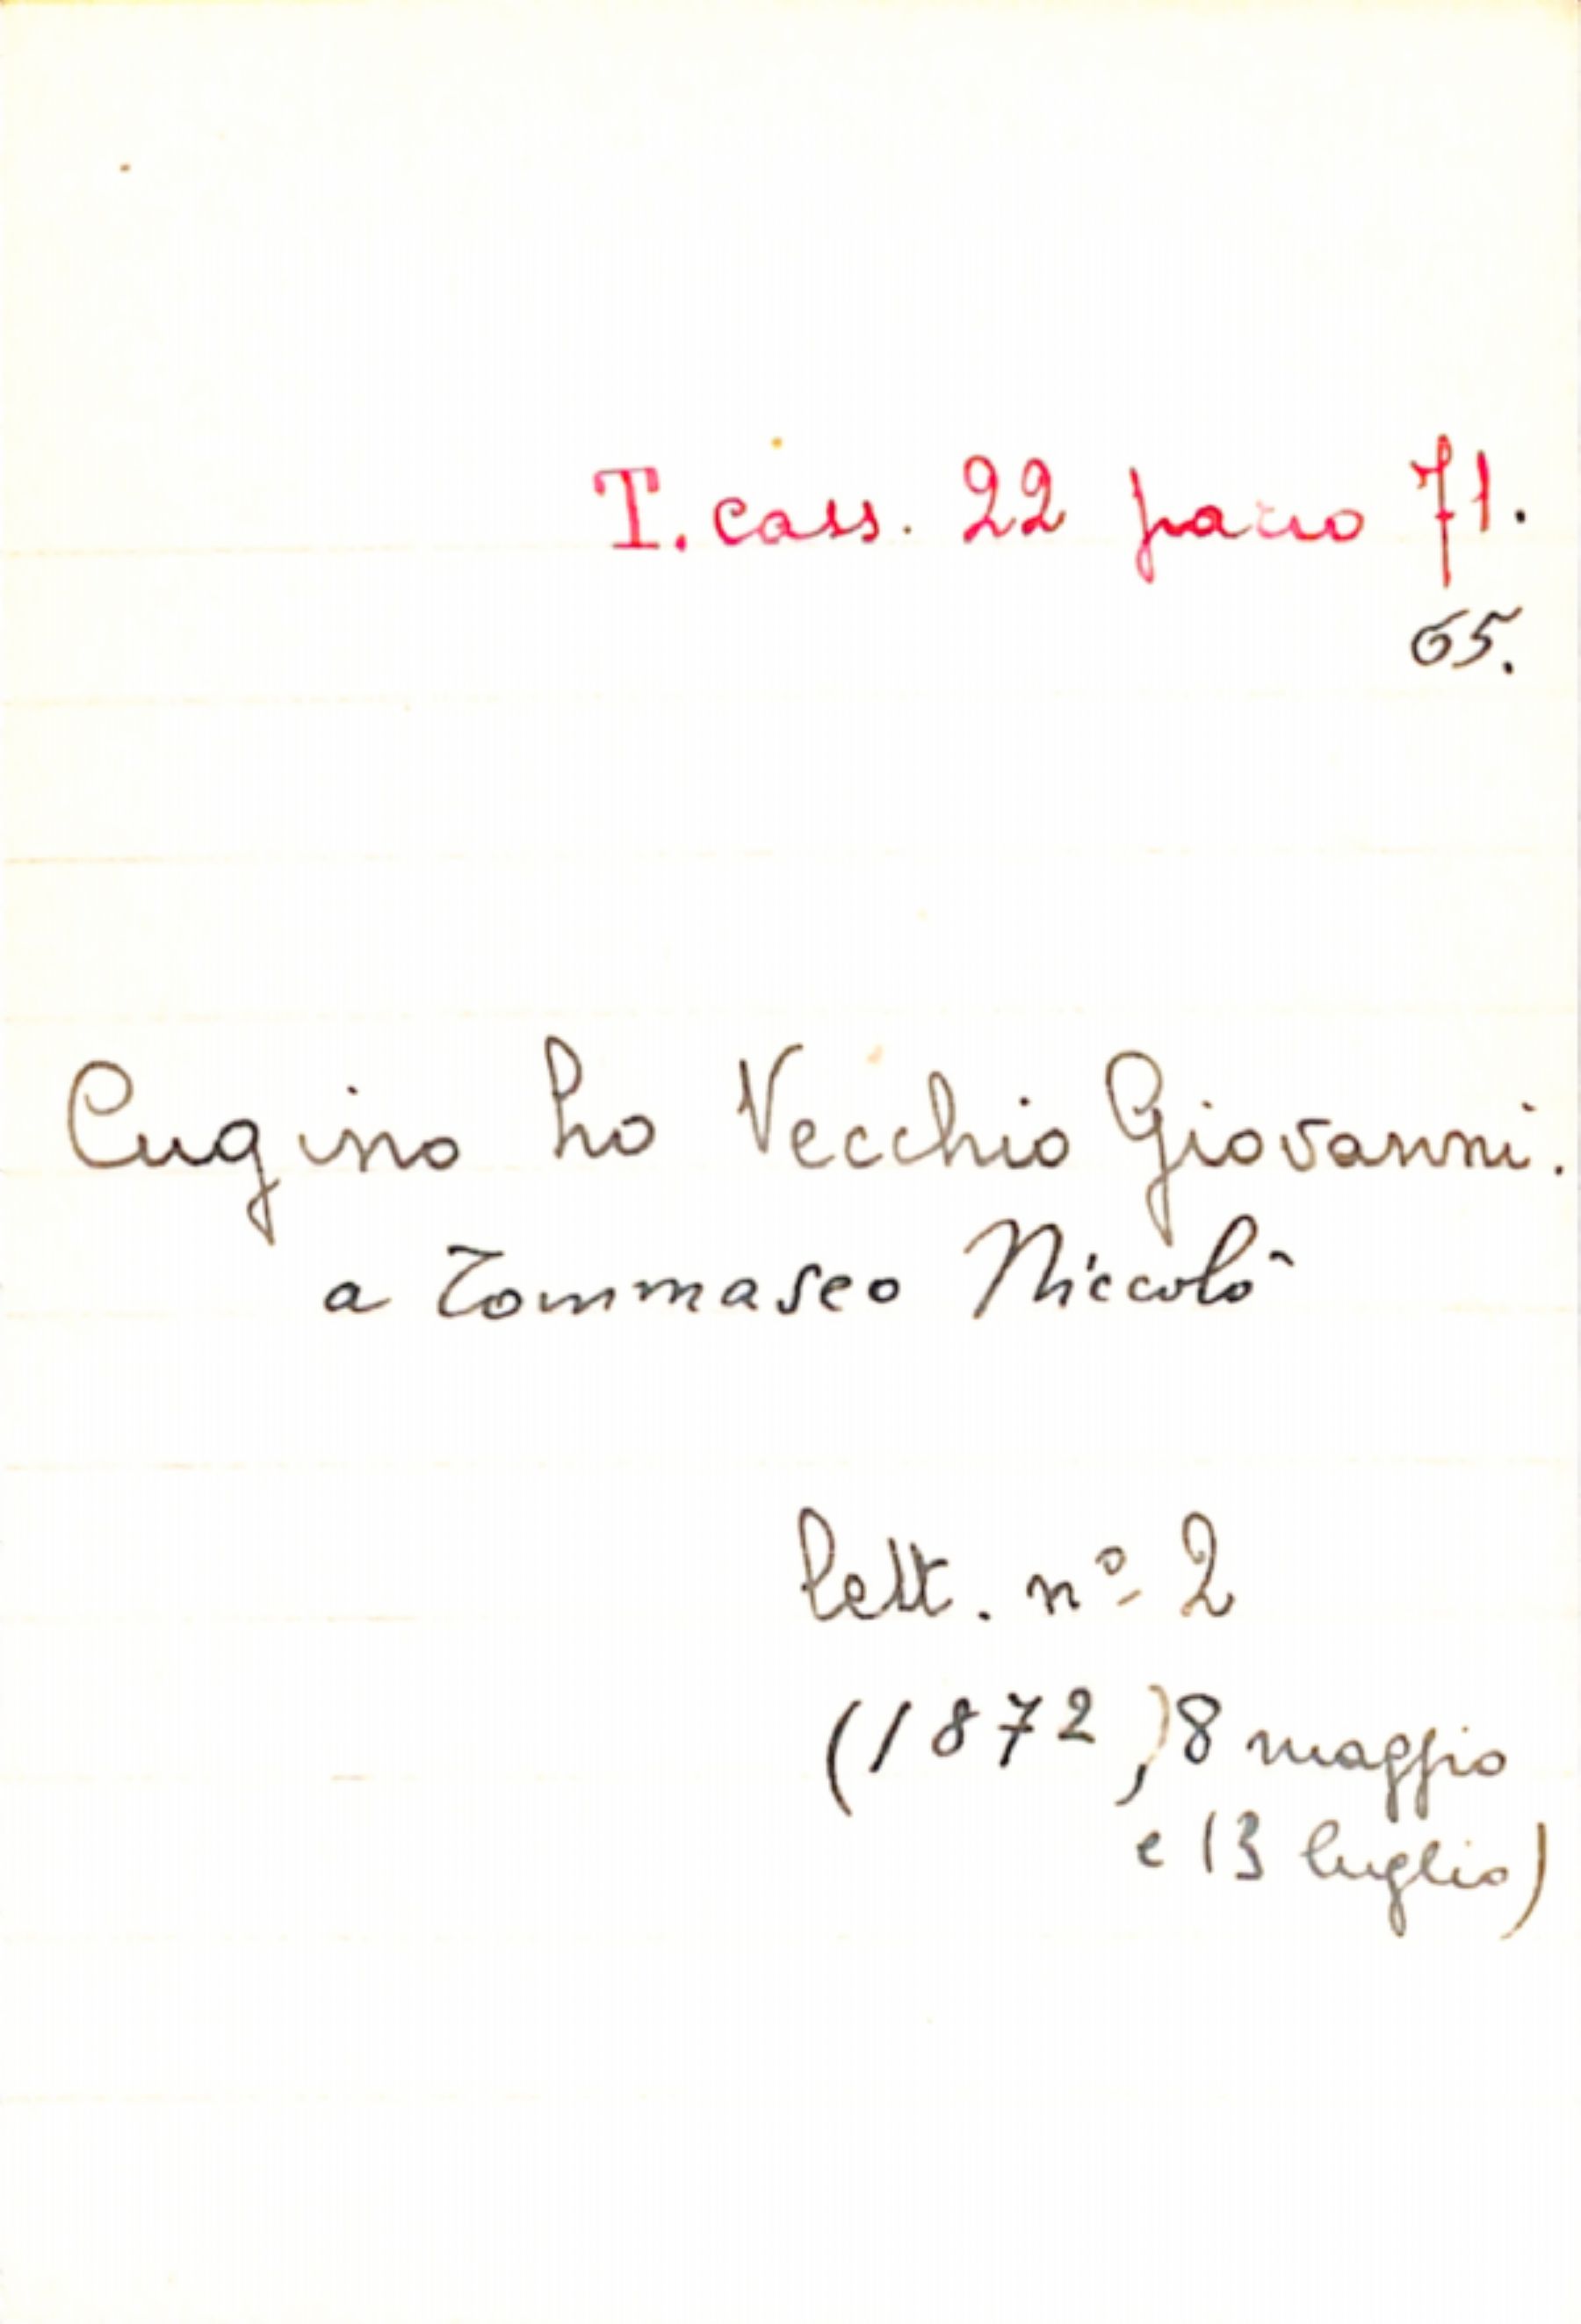 T. cass. 22 pacco 71.
65.
Cugino Lo Vecchio Giovanni.
a Tommaseo Niccolò
lett. nº 2
(1872,) 8 maggio
e 13 luglio)